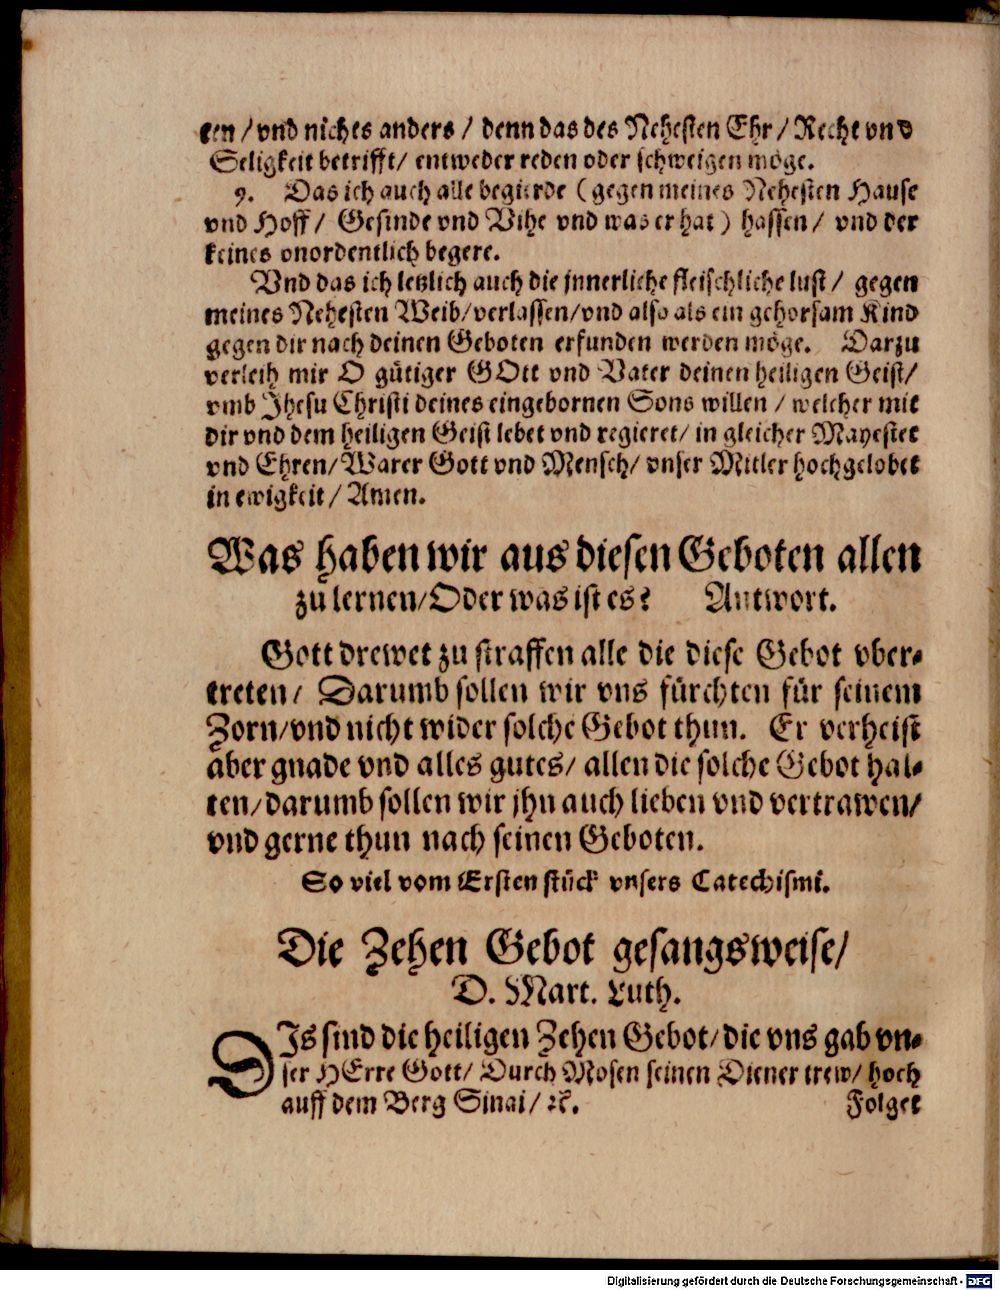 ten / vnd nichts anders / denn das des Nehesten Ehr / Recht vnd
Seligkeit betrifft / entweder reden oder schweigen möge.
9. Das ich auch alle begirde ( gegen meines Nehesten Hause
vnd Hoff / Gesinde vnd Vihe vnd was er hat ) hassen / vnd der
keines vnordentlich begere.
Vnd das ich letzlich auch die jnnerliche fleischliche lust / gegen
meines Nehesten Weib / verlassen / vnd also als ein gehorsam Kind
gegen dir nach deinen Geboten erfunden werden möge. Darzu
verleih mir O gütiger GOtt vnd Vater deinen heiligen Geist /
vmb Jhesu Christi deines eingebornen Sons willen / welcher mit
dir vnd dem heiligen Geist lebet vnd regieret / in gleicher Mayestet
vnd Ehren / Warer Gott vnd Mensch / vnser Mitler hochgelobet
in ewigkeit / Amen.
Was haben wir aus diesen Geboten allen
zu lernen / Oder was ist es? Antwort.
Gott drewet zu straffen alle die diese Gebot vber-
treten / Darumb sollen wir vns fürchten für seinem
Zorn / vnd nicht wider solche Gebot thun. Er verheist
aber gnade vnd alles gutes / allen die solche Gebot hal-
ten / darumb sollen wir jhn auch lieben vnd vertrawen /
vnd gerne thun nach seinen Geboten.
So viel vom Ersten stück vnsers Catechismi.
Die Zehen Gebot gesangsweise /
D. Mart. Luth.
DIs sind die heiligen Zehen Gebot / die vns gab vn-
ser HErre Gott / Durch Mosen seinen Diener trew / hoch
auff dem Berg Sinai / ꝛc. Folget
Digitalisierung gefördert durch die Deutsche Forschungsgemeinschaft - DFG